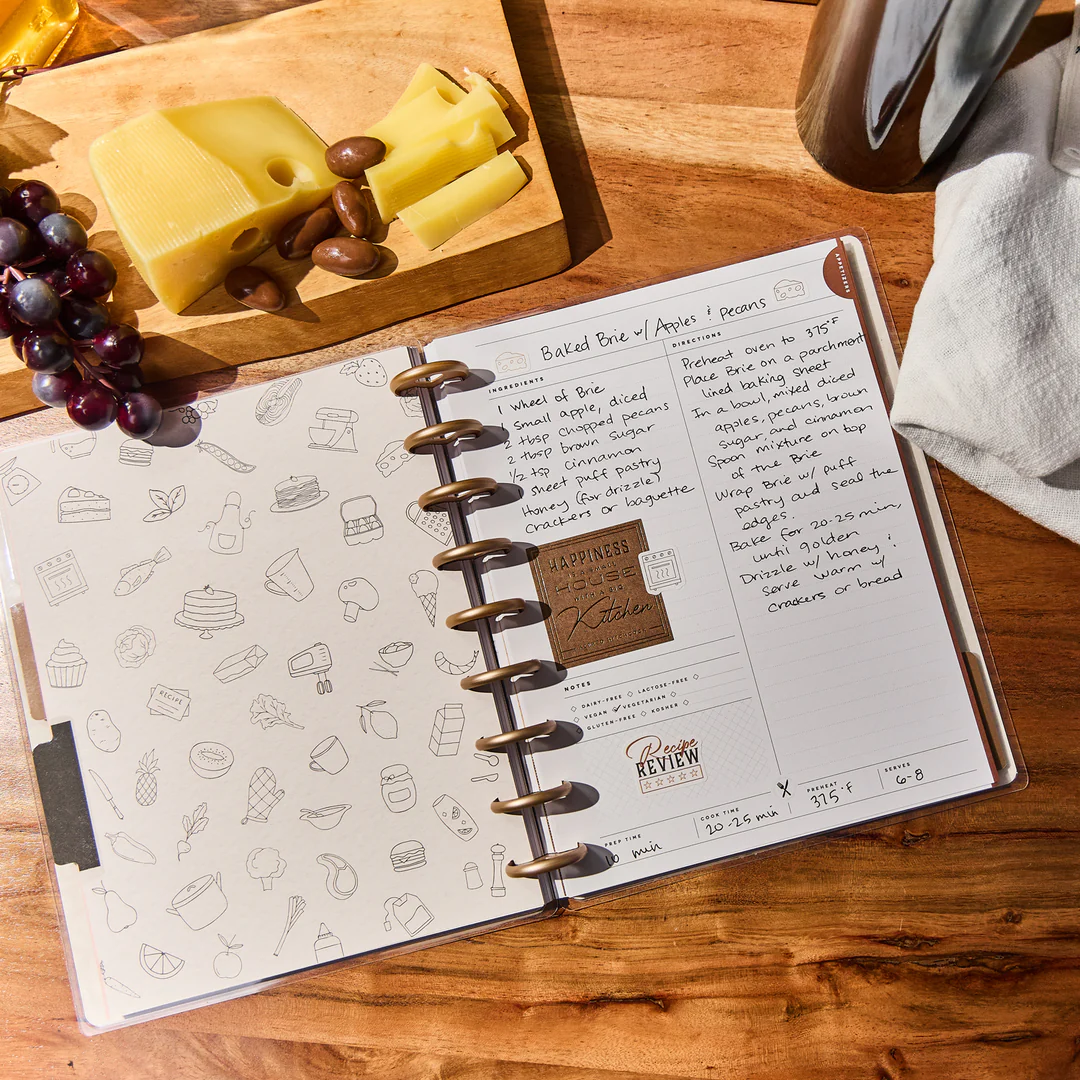 RECIPE
APPETIZERS
Baked Brie w/ Apples & pecans
INGREDIENTS
1 wheel of Brie
small apple, diced
2 tbsp chopped pecans
2 tbsp brown sugar
1/2 tsp cinnamon
sheet puff pastry
Honey (for drizzle)
crackers or baguette
HAPPINESS
HOUSE
WITH A BIG
Kitchen
NOTES
DAIRY-FREE LACTOSE-FREE
VEGAN VEGETARIAN
GLUTEN-FREE KOSHER
Recipe
REVIEW
DIRECTIONS
Preheat oven to 375°F
Place Brie on a parchment
lined baking sheet
In a bowl, mixed diced
apples, pecans, brown
sugar, and cinnamon
Spoon mixture on top
of the Brie
Wrap Brie w/ puff
pastry and seal the
edges.
Bake for 20-25 min,
until golden
Drizzle w/ honey &
serve warm w/
crackers or bread
PREP TIME
10 min
COOK TIME
20-25 min
PREHEAT
375°F
SERVES
6-8